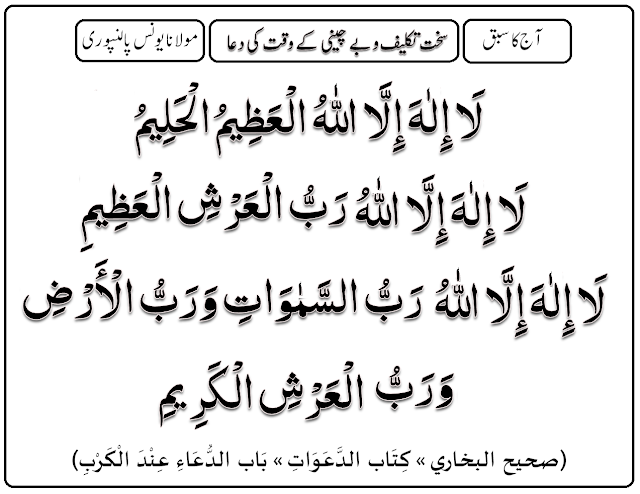 آج کا سبق
سخت تکلیف و بے چینی کے وقت کی دعا
مولانا یونس پالنپوری
لَا إِلٰهَ إِلَّا اللّٰهُ الْعَظِيمُ الْحَلِيمُ
لَا إِلٰهَ إِلَّا اللّٰهُ رَبُّ الْعَرْشِ الْعَظِيمِ
لَا إِلٰهَ إِلَّا اللّٰهُ رَبُّ السَّمٰوَاتِ وَرَبُّ الْأَرْضِ
وَرَبُّ الْعَرْشِ الْكَرِيمِ
(صحيح البخاري » كِتَاب الدَّعَوَاتِ » بَاب الدُّعَاءِ عِنْدَ الْكَرْبِ)